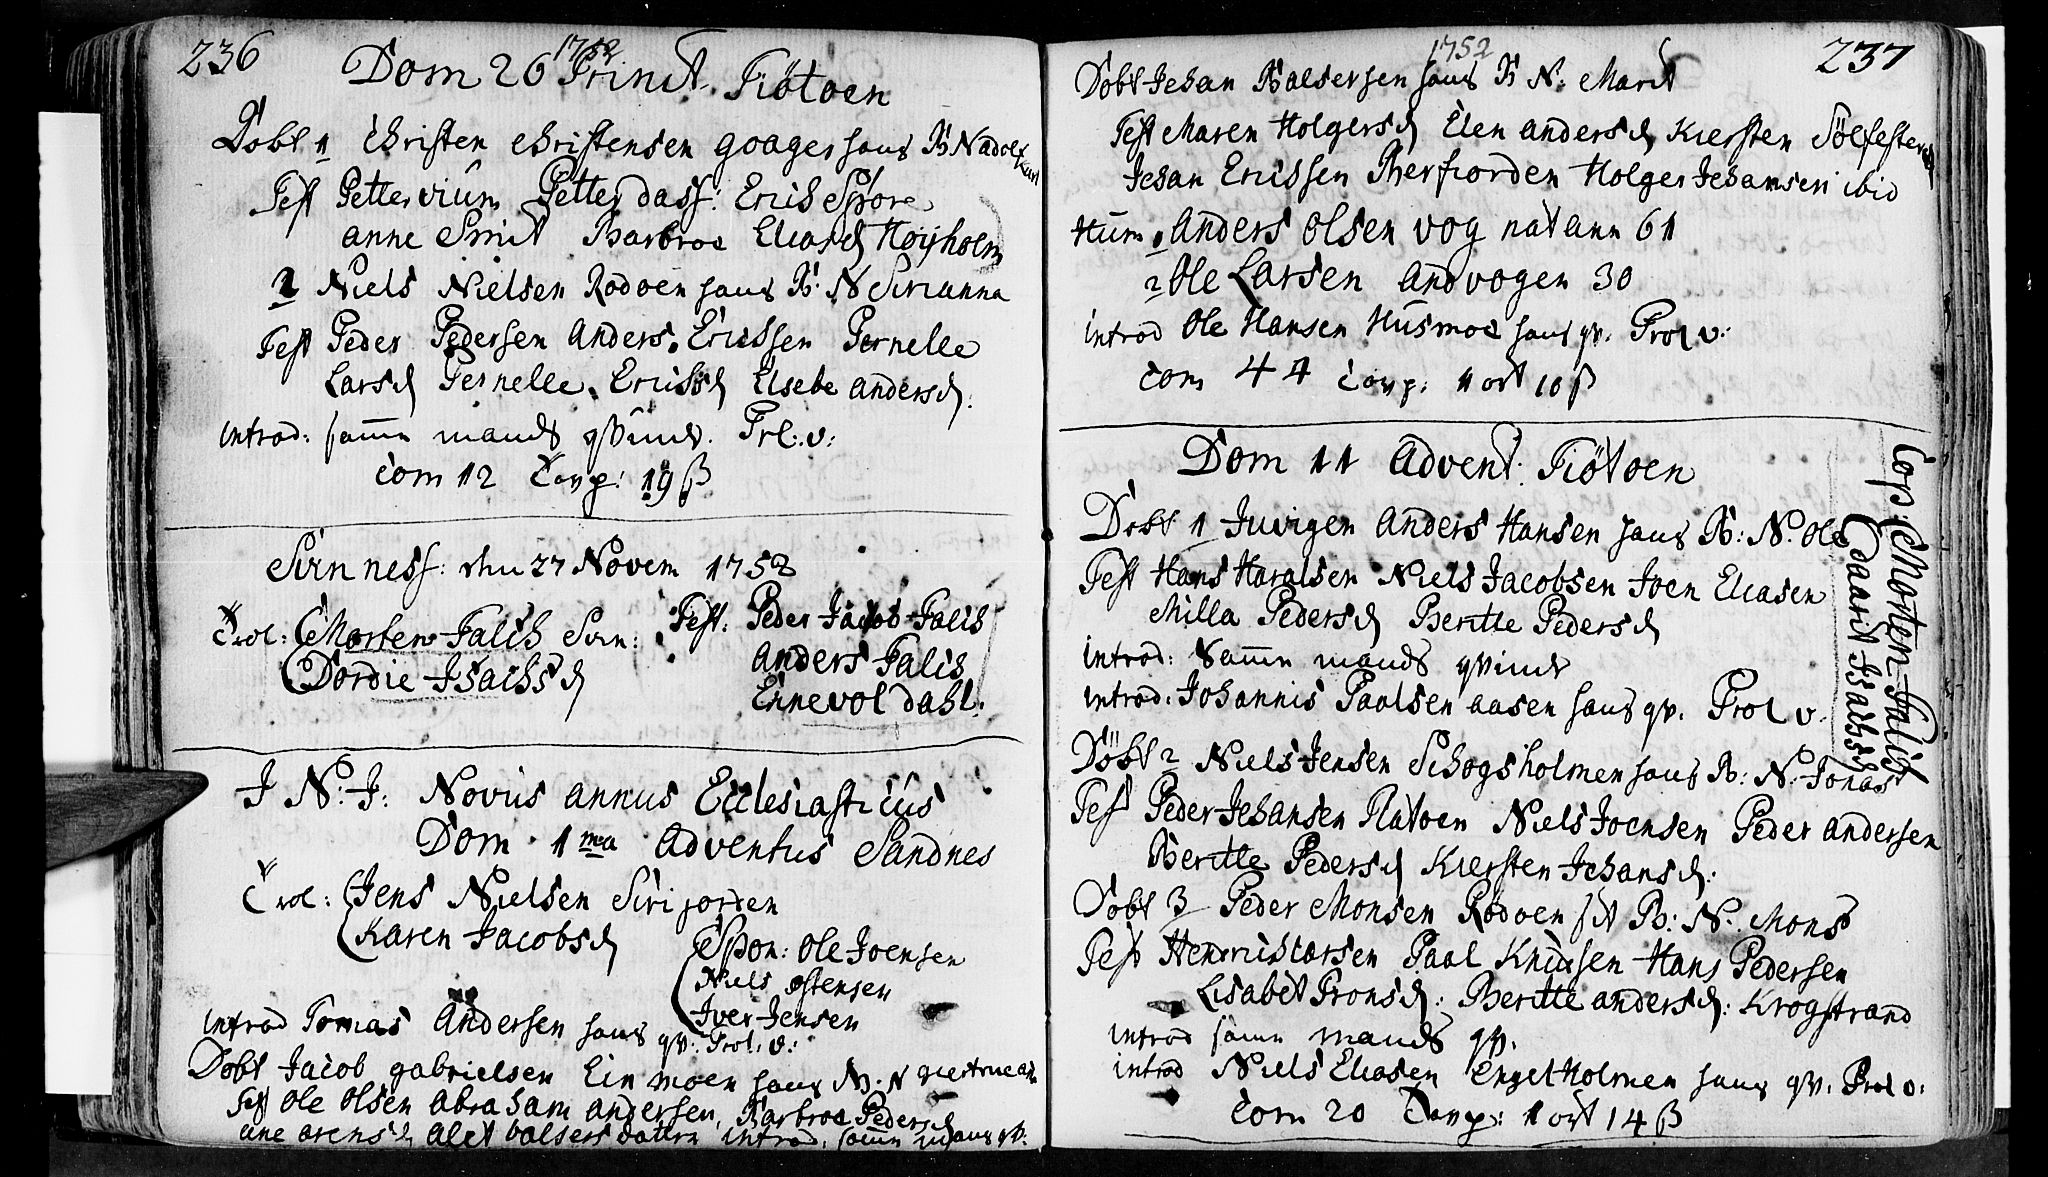 236
1752
Dom 26 Trinit. Tiøtoen
Dobt 1 Christen Christensen Goager hans B N adolf
Test Petter vium Petter dass. Erich Spore
anne Smit Barbroe Eliasd Høyholm
2 Niels Nielsen Rodoen hans B: N Sirianna
Test Peder Pedersen Anders Erichsen Pernelle
Larsd Pernelle Erichsd Elsebe andersd:
introd: samm mands qvinde. Prl. v:
Com 12 Tavp: 19 ß
Sirnness: den 27 Novem 1752
Trol: Morten Falch Sirn:
Dordie Isachsd
Test: Peder Jacob Falch
Anders Falch
Ennevol dahl:
J N: J: Novus annus Ecclesiasticus
Dom 1ma Adventus Sandnes
Trol: Jens Nielsen Sirijorden
Karen Jacobsd
Spon: Ole Joensen
Niels ostensen
Iver Jensen
introd Tomas Andersen hans qv: Prol. v:
Dobt Jacob gabrielsen Einmoen hans B. N
Test Ole Olsen Abraham andersen, Barbroe Pedersd
ane arensd Alet balsersdatter introd: samm mands qv:
1752
237
Dobt Jehan Balsersen hans B N: Marit
Test Maren Holgersd Elen andersd Kiersten Sølfestersd
Jehan Erissen Berfiorden Holger Jehansen ibid
Hum. 1 Anders Olsen vog nat ann 61
2 Ole Larsen Andvogen 30
introd Ole Hansen Husmoe hans qv. Prol v:
Com 44 Tavp: 1 ort 10 ß
Dom 11 Advent: Tiøtoen
Dobt 1 Juvigen Anders Hansen hans B: N. Ole
Test Hans Haralsen Niels Jacobsen Joen Eliasen
Milla Pedersd Beritte Pedersd
introd: Samm mands qvinde
introd: Johannis Paalsen aasen hans qv. Prol v.
Døbt 2 Niels Jensen Schogsholmen hans B: N: Jonas
Test Peder Jehansen Ratoen Niels Joensen Peder andersen
Beritte Pedersd Kiersten Jehansd:
Dobt 3 Peder Monsen Rodoen sit B: N. Mons
Test Henrich Larsen Paal Knudsen Hans Pedersen
Lisabet Tronsd: Beritte andersd: Krogstrand
introd samm mands qv.
introd Niels Eliasen Engelholmen hans qv. Prol v:
Com 20 Tavp: 1 ort 14 ß
Cop: Morten Falch
Daarit Isachsd